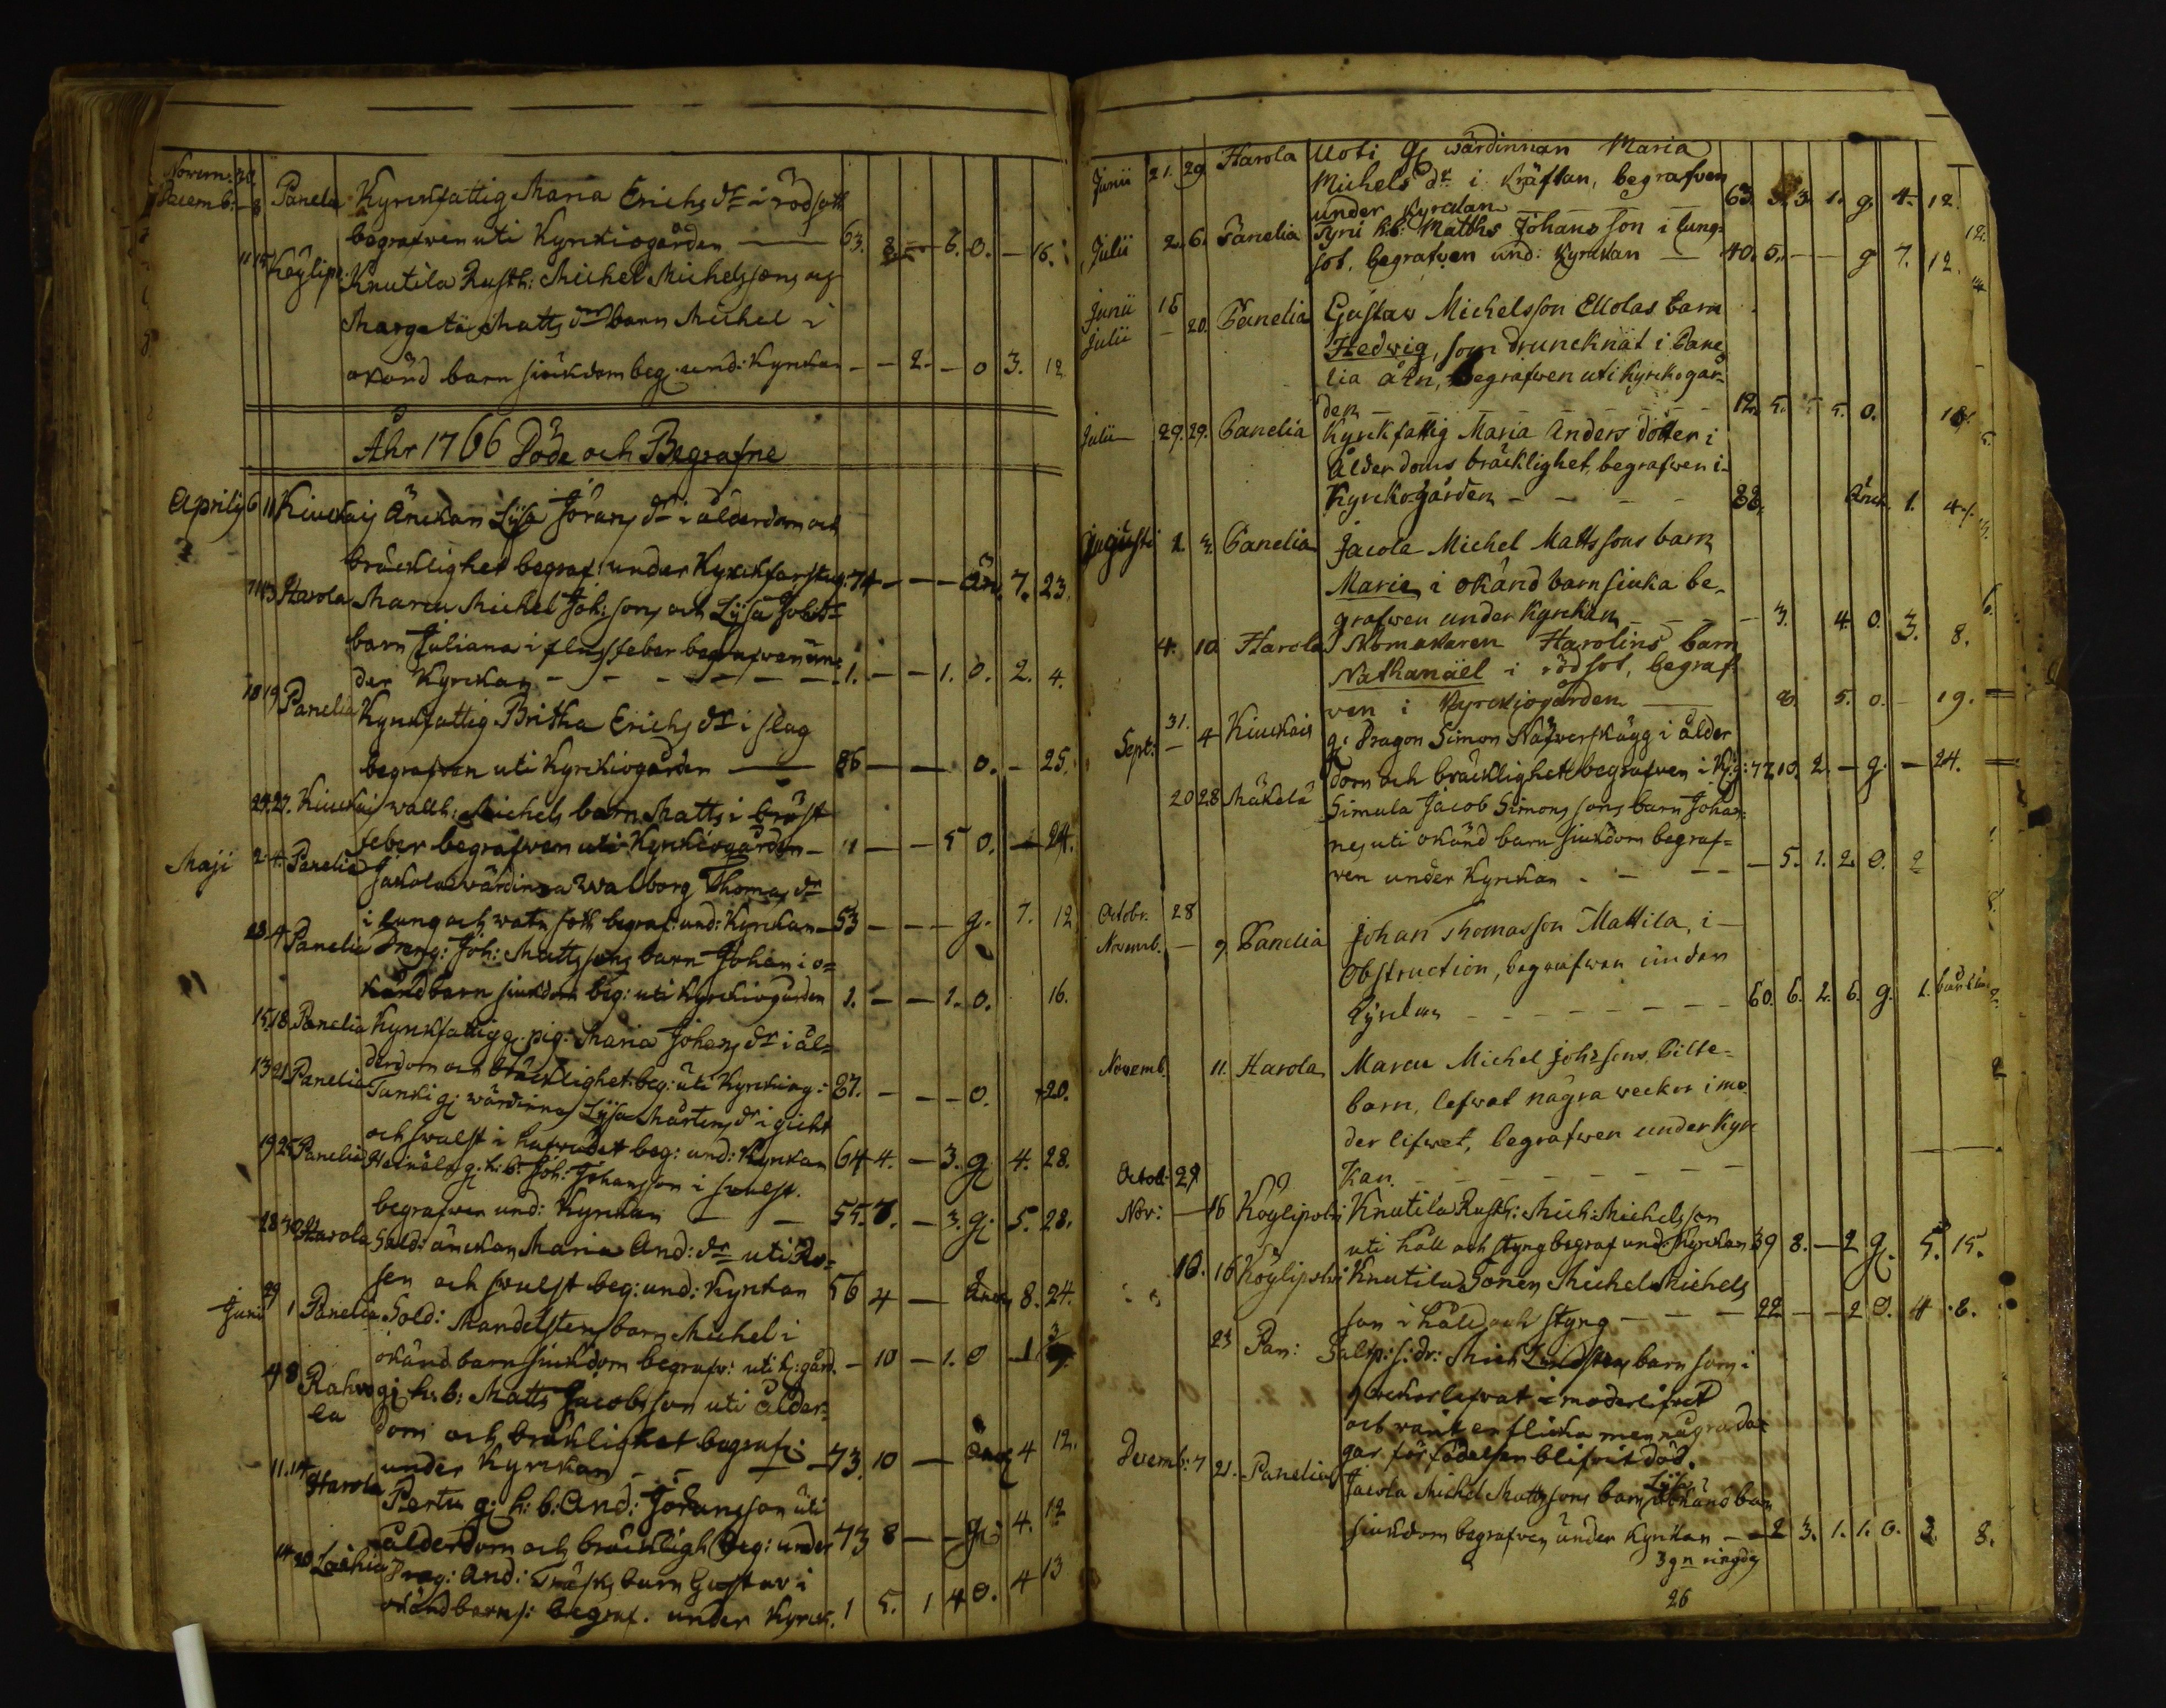 Novem: 30.
Decemb: - 8 Panela Kyrckfattig Maria Erichs dr i rödsott
begrafwen uti Kyrckiogården — 63. 8. — 6. O. — 16.
11 15 Köylip: Knutila Rusth: Michel Michelssons och
Margeta Matts drs barn Michel i
okänd barn siukdom beg: und: Kyrckan - - 2. - O 3. 12
Åhr 1766 Döde och Begrafne
Aprilis 6 11 Kiuckais Änckan Lisa Jörans dr i ålderdom och
bräcklighet begraf: under Kyrckfarstug: 74 - - - Än. 7. 23.
7 13 Harola Marcu Michel Joh: sons och Lisa Joh: drs
barn Juliana i flussfeber begrafwen un=
der Kyrckan - - - - - 1. - - 1. O. 2. 4.
18 19 Panelia Kyrckfattig Britha Erichs dr i slag
begrafwen uti Kyrckiogården — 86 — — O. - 25.
24. 27. Kiuckais wallh: Michels barn Matts i bröst
feber begrafwen uti Kyrckiogården - 11 - - 5 O. - 24.
Maji 2 4 Panelia Jakola wärdinna Walborg Thomas dr
i lung och watn sott begraf: und: Kyrckan - 53 - - - g. 7. 12
23 4 Panelia Dreng: Joh: Mattssons barn Johan i o=
känd barn siukdom beg: uti Kyrckiogården 1. - - 1. O. 16.
15. 18 Panelia Kyrckfattig g. pig: Maria Johans dr i ål=
derdom och bräcklighet beg: uti Kyrckiog: 87. - - - O. 20.
13 21 Panelia Tanki g: wärdinna Lisa Mårtens dr i gicht
och swulst i hufwudet beg: und: Kyrckan 64 4. - 3. g. 4. 28.
19 25 Panelia Heinäla g. h: b: Joh: Johansson i swulst.
begrafwen und: Kyrckan - - 55. 7. - 3. g. 5. 28.
28 30 Harola Sold: änckan Maria And: dr uti Ro=
sen och swulst beg: und: Kyrckan 56 4 - Änck 8. 24.
29
Junii 1 Panelia Sold: Mandelstens barn Michel i
okänd barn siukdom begrafw: uti k: gård. - 10 - 1. O - 1
4 8 Rahwo g: h: b: Matts Jacobsson uti ålder=
la dom och bräcklighet begraf:
under Kyrckan - - - 73. 10 - Änck 4 12.
11. 14 Harola Pertu g: h: b: And: Johansson uti
ålderdom och bräckligh beg: under 73 8 - - g: 4. 12
14 20 Laihia Drag: And: Träsks barn Gustav i
okänd barn s: begraf. under Kyrck. 1 5. 1 4 O. 4 13
Junii 21. 29. Harola Uoti g: wärdinnan Maria
Michels dr. i Kräftan, begrafven
under Kyrckan 63. 5. 3. 1. g. 4. 12.
Julii 2. 6. Panelia Tyni h.b: Matths Johansson i lung-
sot, begrafven und: Kyrckan — 40. 5. - - g 7. 12.
Junii 15
Julii - 20. Panelia Gustaw Michelsson Ellolas barn
Hedwig, som druncknat i Pane
lia åtn, begrafwen uti Kyrckogår-
den - - - - - 12. 5. 5. O. 18.
Julii 29. 29. Panelia Kyrckfattig Maria Anders dotter i
Ålderdoms bräcklighet, begrafwen i
Kyrckogården - - - 88. Änck. 1. 4.
Augusti 2. 3. Panelia Jacola Michel Mattssons barn
Maria i okänd barnsiuka be-
grafwen under Kyrckan - - - 3. 4. O. 3. 8.
4. 10 Harola Skomakaren Harolins barn
Nathanaël i rödsot, begraf
ven i Kyrckiogården — 8. 5. O. - 19.
31.
Sept: - 4 Kiuckais g: Dragon Simon Näfwerskägg i ålder
dom och bräcklighet begrafven i Kg: 77. 10. 2. - g. - 24.
20 28 Mäkelä Simula Jacob Simonssons barn Johan=
nes uti okänd barn siukdom begraf=
ven under Kyrckan - - - - - 5. 1. 2. O. 2
Octobr. 28
Novemb. - 9. Panelia Johan Thomasson Mattila, i
Obstruction, begrafwen under
Kyrckan - - - - - 60. 6. 2. 6. g. 1.
Novemb. 11. Harola Marcu Michel Johssons Pilte-
barn, lefwat några weckor i mo
der lifwet, begrafwen under Kyrc
Kan. - - - - -
Octob: 29
Nov: - 16 Köylipolvi Knutila Rusth: Mich: Michelsson
uti håll och styng begraf und: Kyrckan 39 8. - 2 g. 5. 15.
10. 16 Köylipolvi Knutila Sonen Michel Michels
son i håll och styng - - - 22 - - 2 O. 4 8.
23 Pan: Saltp: s: dr: Mich Lindstens barn som i
weckor lefwat i moderlifwet
och varit en flicka men några da=
gar för födelsen blifwit död.
Decemb: 7 21. Panelia Jacola Michel Mattssons barn Lisa i okänd barn
siukdom begrafven under Kyrckan - 2 3. 1. 1. O. 3. 8.
3 gn ringdg
26